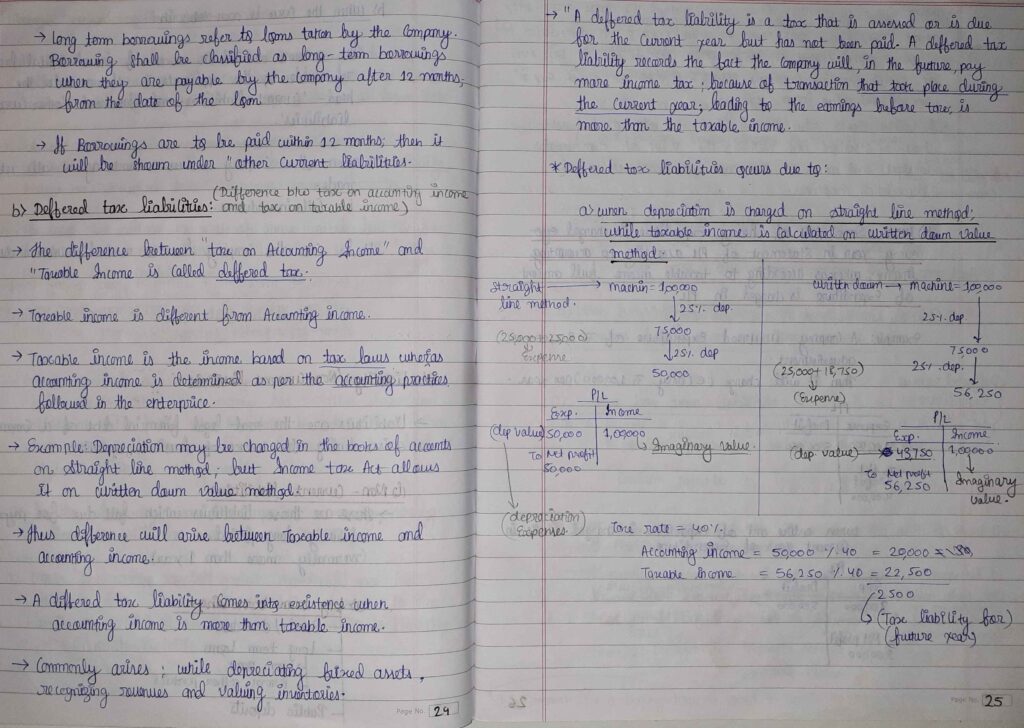 → Long term borrowings refer to loans taken by the Company.
Borrowing shall be classified as long-term borrowings
when they are payable by the company after 12 months,
from the date of the loan
→ If Borrowings are to be paid within 12 months, then it
will be shown under "other current liabilities.
(Difference b/w tax on accounting income
b) Deffered tax liabilities: and tax on taxable income)
→ The difference between "tax on Accounting Income" and
"Taxable Income is called deffered tax.
→ Taxable income is different from Accounting income.
→ Taxable income is the income based on tax laws whereas
accounting income is determined as per the accounting practices
followed in the enterprice.
→ Example: Depreciation may be changed in the books of accounts
on straight line method, but Income tax Act allows
it on written down value method.
→ Thus difference will arise between Taxeable income and
accounting income.
→ A differed tax liability comes into existence when
accounting income is more than taxeable income.
→ Commonly arises: while depreciating fixed assets,
recognizing revenues and valuing inventories.
Page No. 24
→ "A deffered tax liability is a tax that is assessed or is due
for the current year but has not been paid. A deffered tax
liability records the fact the company will, in the future, pay
more income tax; because of transaction that took place during
the current year, leading to the earnings before tax, is
more than the taxable income.
* Deffered tax liabilities occurs due to:
a) when depreciation is charged on straight line method;
while taxable income is calculated on written down value
method
straight → machin = 1,00,000
line method.
25% dep
(25,000 + 25000) 75,000
Expense
25% dep
50,000
P/L
Exp. Income
(dep value) 50,000 1,00000 → Imaginary value.
To Net profit
50,000
(depreciation)
Expenses
written down → machine = 1,00,000
25% dep
75,000
(25,000 + 18,750) 25% dep.
(Expense) 56,250
P/L
Exp. Income
(dep value) → 43,750 1,00,000
To Net profit
56,250 Imaginary
value.
Tax rate = 40%
Accounting income = 50,000 % 40 = 20,000
Taxeable income = 56,250 % 40 = 22,500
2500
(Tax liability for)
(future year)
Page No. 25